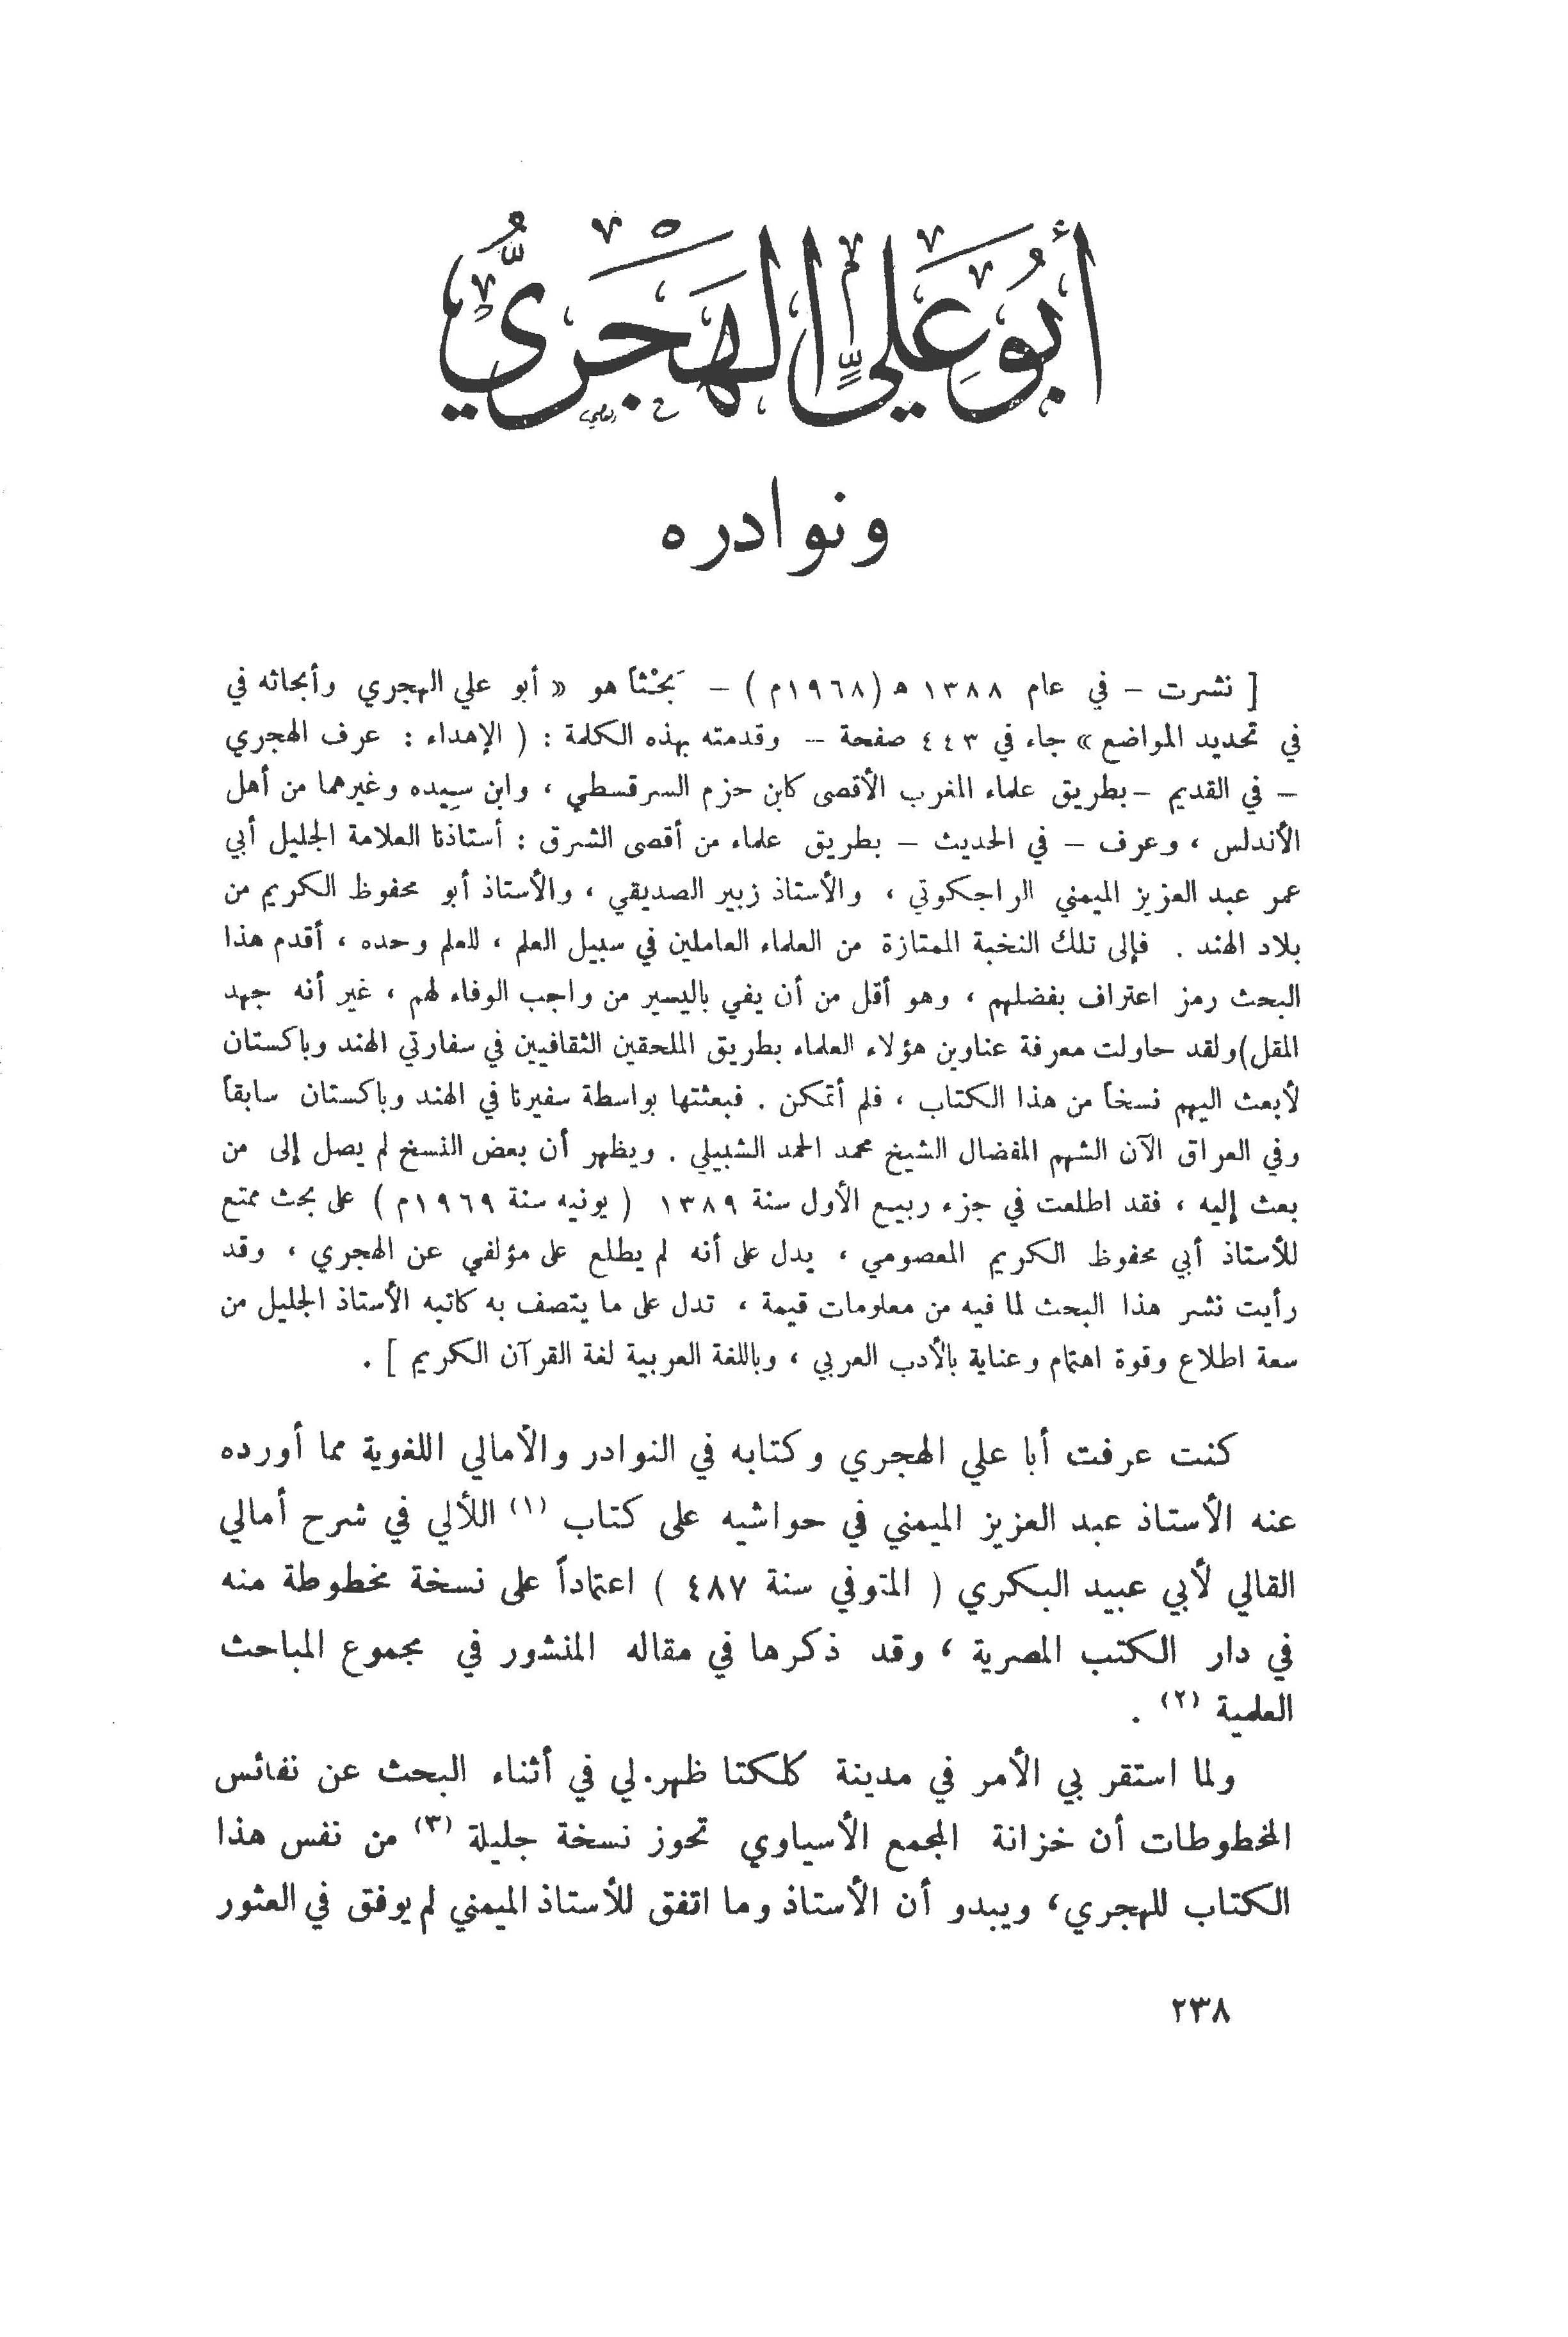 أَبُو عَليٍّ الهَجْرَيُّ
ونوادره
[ نشرت – في عام ١٣٨٨ هـ (١٩٦٨م ) – بَحْثاً هو « أبو علي الهجري وأبحاثه في
في تحديد المواضع » جاء في ٤٤٣ صفحة – وقدمته بهذه الكلمة : ( الإهداء : عرف الهجري
– في القديم – بطريق علماء المغرب الأقصى كابن حزم السرقسطي ، وابن سِيده وغيرهما من أهل
الأندلس ، وعرف – في الحديث – بطريق علماء من أقصى الشرق : أستاذنا العلامة الجليل أبي
عمر عبد العزيز الميمني الراجكوتي ، والأستاذ زبير الصديقي ، والأستاذ أبو محفوظ الكريم من
بلاد الهند . فإلى تلك النخبة الممتازة من العلماء العاملين في سبيل العلم ، للعلم وحده ، أقدم هذا
البحث رمز اعتراف بفضلهم ، وهو أقل من أن يفي باليسير من واجب الوفاء لهم ، غير أنه جهد
المقل)ولقد حاولت معرفة عناوين هؤلاء العلماء بطريق الملحقين الثقافيين في سفارتي الهند وباكستان
لأبعث اليهم نسخاً من هذا الكتاب ، فلم أتمكن . فبعثتها بواسطة سفيرنا في الهند وباكستان سابقاً
وفي العراق الآن الشهم المفضال الشيخ محمد الحمد الشبيلي . ويظهر أن بعض النسخ لم يصل إلى من
بعث إليه ، فقد اطلعت في جزء ربيع الأول سنة ١٣٨٩ ( يونيه سنة ١٩٦٩م ) على بحث ممتع
للأستاذ أبي محفوظ الكريم المعصومي ، يدل على أنه لم يطلع على مؤلفي عن الهجري ، وقد
رأيت نشر هذا البحث لما فيه من معلومات قيمة ، تدل على ما يتصف به كاتبه الأستاذ الجليل من
سعة اطلاع وقوة اهتمام وعناية بالأدب العربي ، وباللغة العربية لغة القرآن الكريم ] .
كنت عرفت أبا علي الهجري وكتابه في النوادر والأمالي اللغوية مما أورده
عنه الأستاذ عبد العزيز الميمني في حواشيه على كتاب (١) اللألي في شرح أمالي
القالي لأبي عبيد البكري ( المتوفي سنة ٤٨٧ ) اعتماداً على نسخة مخطوطة منه
في دار الكتب المصرية ، وقد ذكرها في مقاله المنشور في مجموع المباحث
العلمية (٢) .
ولما استقر بي الأمر في مدينة كلكتا ظهر.لي في أثناء البحث عن نفائس
المخطوطات أن خزانة المجمع الأسياوي تحوز نسخة جليلة (٣) من نفس هذا
الكتاب للهجري، ويبدو أن الأستاذ وما اتفق للأستاذ الميمني لم يوفق في العثور
٢٣٨